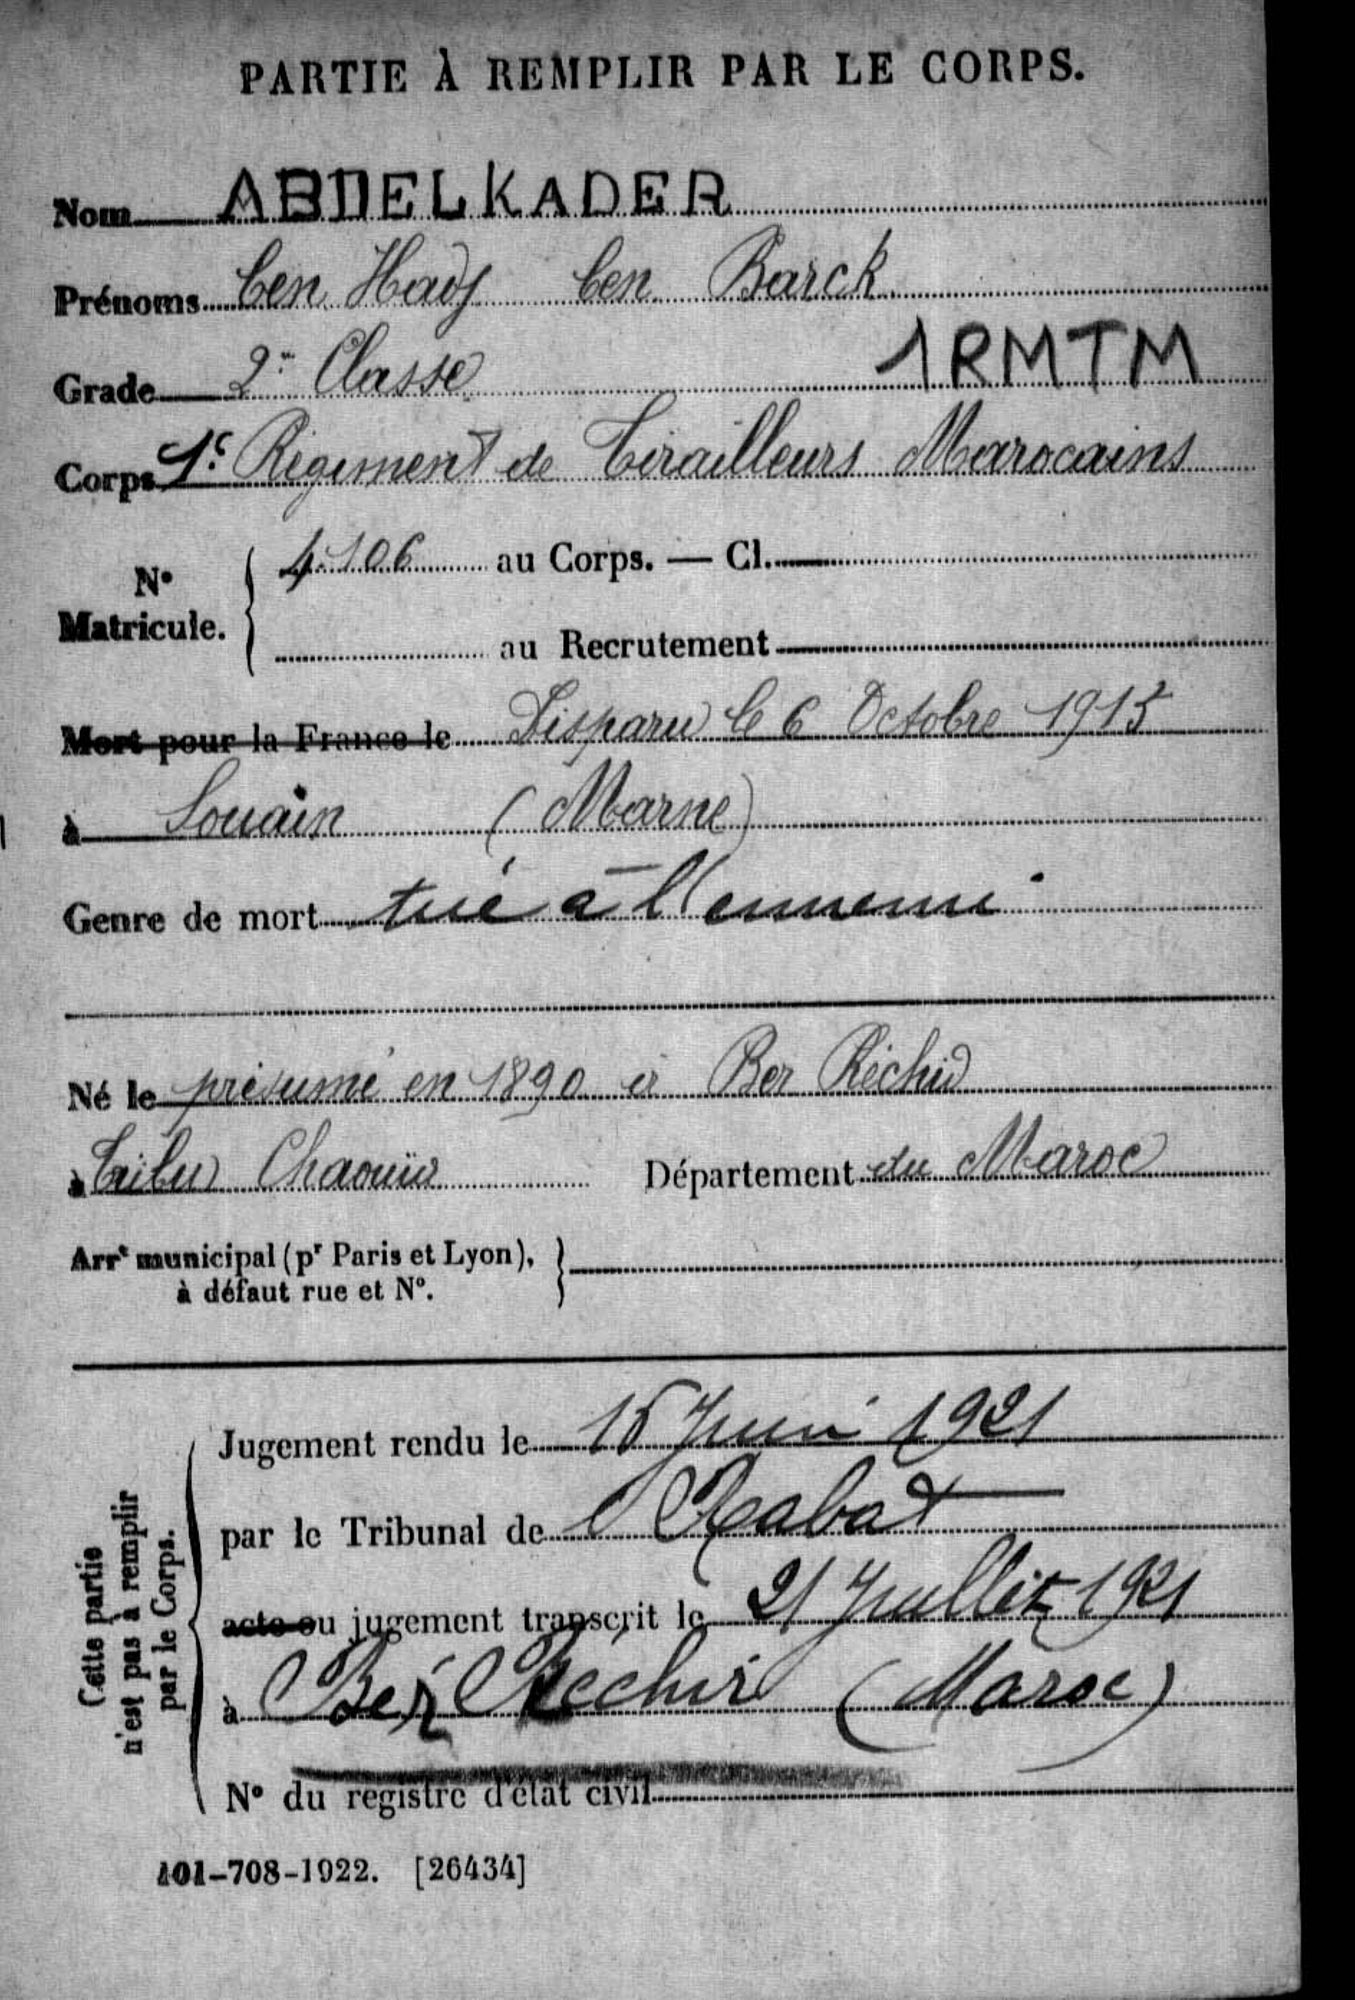 PARTIE À REMPLIR PAR LE CORPS.
Nom ABDELKADER
Prénoms ben Hadj ben Barck
Grade 2e Classe 1RMTM
Corps 1er Régiment de Tirailleurs Marocains
N° Matricule. 4.106 au Corps. — Cl.
au Recrutement
Mort pour la France le Disparu le 6 Octobre 1915
à Souain (Marne)
Genre de mort tué à l'ennemi
Né le présumé en 1890 à Ber Réchid
à Tribu Chaouïa Département du Maroc
Arrt municipal (pr Paris et Lyon),
à défaut rue et N°.
Cette partie
n'est pas à remplir
par le Corps.
Jugement rendu le 15 Juin 1921
par le Tribunal de Rabat
acte ou jugement transcrit le 21 Juillet 1921
à Ber Réchid (Maroc)
N° du registre d'état civil
101-708-1922. [26434]